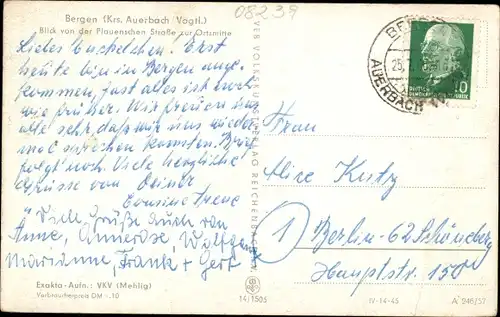 Bergen (Krs. Auerbach Vogtl.)
Blick von der Plauenschen Straße zur Ortsmitte
08239
Liebes Cuschelchen! Erst
heute bin in Bergen ange-
kommen, fast alles ist noch
wie früher. Wir freuen uns
alle sehr, dass wir uns wieder
mal sprechen konnten. Brief
folgt noch. Viele herzliche
Grüsse von Deiner
Cousine Irene
Viele Grüße auch von
Anne, Annerose, Wolfgang
Marianne, Frank + Gert
Exakta-Aufn.: VKV (Mehlig)
Verbraucherpreis DM -.10
14/1505
BERGEN
AUERBACH
DEUTSCHE
DEMOKRATISCHE REPUBLIK
10
Frau
Alice Kutz
1 Berlin-62 Schöneberg
Hauptstr. 150
IV-14-45
A 246/57